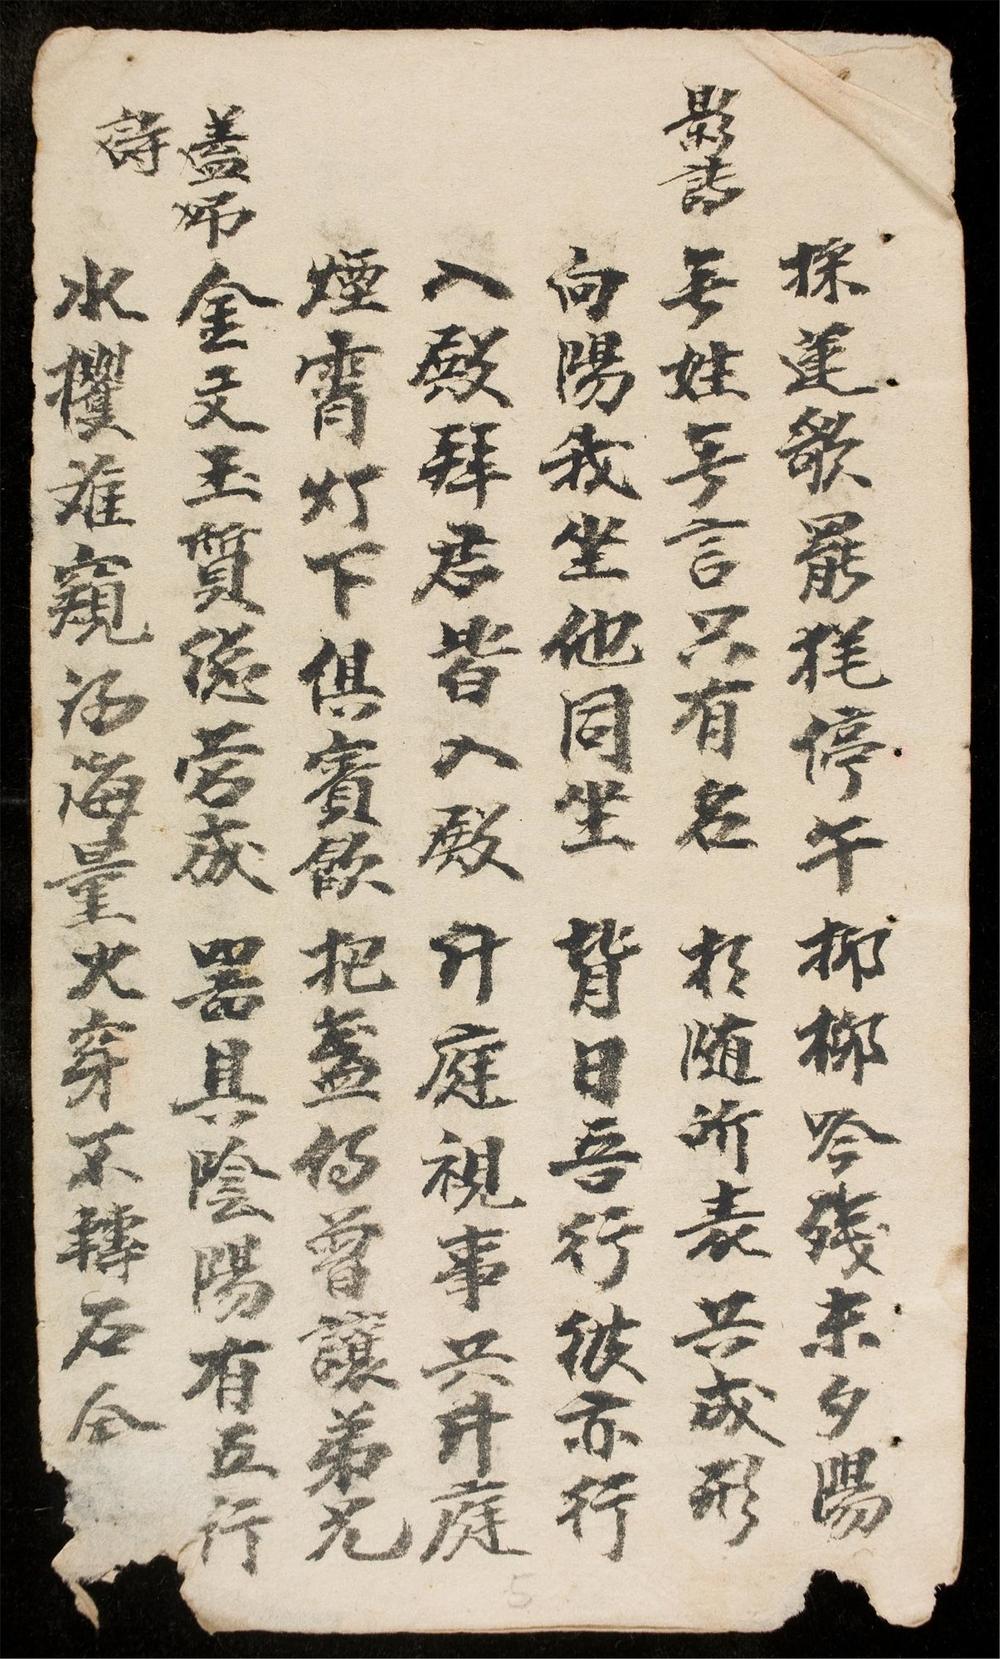 採蓮歌罷猶停午 揶揶吟殘未夕陽
影詩
無姓無言只有名 相随所表共成形
向陽我坐他同坐 背日吾行彼亦行
入殿拜君皆入殿 升庭視事共升庭
煙霄灯下俱賓飲 把盞仍曾讓弟兄
蓋
金文玉質総営成 器具陰陽有五行
詩
水攫难窺海量火穿不轉石